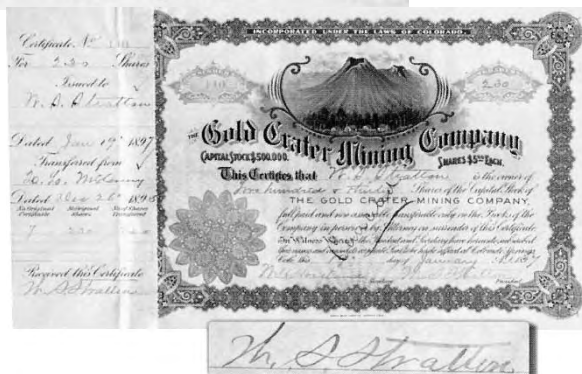 Certificate No 110
For 230 Shares
Issued to
W. S. Stratton
Dated Jan 19 1897
Transferred from
Dated Dec 26 1895
No Original Certificate No Original Shares No of Shares Transferred
7 230
Received this Certificate
W. S. Stratton
INCORPORATED UNDER THE LAWS OF COLORADO.
110
230
THE Gold Crater Mining Company
CAPITAL STOCK $500,000. SHARES $5.00 EACH.
This Certifies that W. S. Stratton is the owner of
Two hundred & thirty Shares of the Capital Stock of
THE GOLD CRATER MINING COMPANY,
full paid and non assessable transferable only on the Books of the
Company in person or by Attorney on surrender of this Certificate
In Witness Whereof the President and Secretary have hereunto subscribed
their names and caused the corporate Seal to be hereto affixed at Colorado Springs
Colo. this day of January A.D. 1897
Secretary President
W. S. Stratton